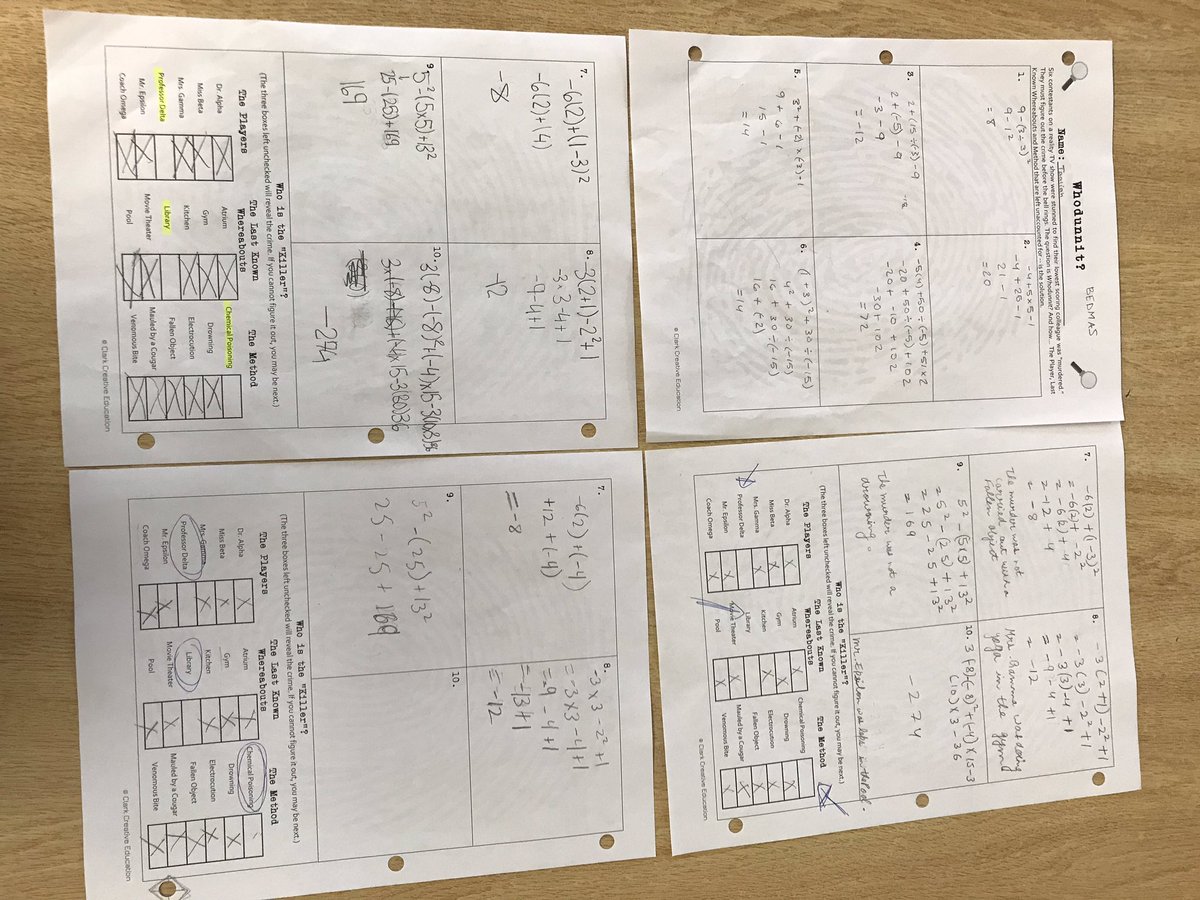 Whodunnit?
BEDMAS
Name:
Six contestants on a reality TV show were stunned to find their lowest scoring colleague was "murdered."
They must figure out the crime before the bell rings. The question is Whodunnit? And how... The Player, Last
Known Whereabouts and Method that are left unaccounted for -- is the solution.
1.
9-(3÷3)²
9-1²
=8
2.
-4+5×5-1
-4+25-1
21-1
=20
3.
2+(15÷(-3))-9
2+(-5)-9
-3-9
=-12
4.
-5(4)+50÷(-5)+51×2
-20+50÷(-5)+102
-20+-10+102
-30+102
=72
5.
3²+(-2)×(-3)-1
9+6-1
15-1
=14
6.
(1+3)²+30÷(-15)
4²+30÷(-15)
16+30÷(-15)
16+(-2)
=14
© Clark Creative Education
7.
-6(2)+(-3)²
=-6(2)+-2²
=-6(2)+4
=-12+4
=-8
The murder was not
carried out with a
Fallen object
8.
-3(2+1)-2²+1
=-3(3)-2²+1
=-3(3)-4+1
=-9-4+1
=-12
Mrs Gamma was doing
yoga in the gym
9.
5²-(5×5)+13²
=5²-(25)+13²
=25-25+13²
=169
The murder was not a
drowning.
10.
3(-8)-(-8)²+(-4)×15-3
(10)×3-36
-274
Mr. Epsilon was laps in the Pool.
Who is the "Killer"?
(The three boxes left unchecked will reveal the crime. If you cannot figure it out, you may be next.)
The Players
The Last Known
Whereabouts
The Method
Dr. Alpha
Atrium
Chemical Poisoning
Miss Beta
Gym
Drowning
Mrs. Gamma
Kitchen
Electrocution
Professor Delta
Library
Fallen Object
Mr. Epsilon
Movie Theater
Mauled by a Cougar
Coach Omega
Pool
Venomous Bite
© Clark Creative Education
7.
-6(2)+(1-3)²
-6(2)+(4)
-8
8.
-3(2+1)-2²+1
-3×3-4+1
-9-4+1
-12
9.
5²-(5×5)+13²
25-(25)+169
169
10.
-274
Who is the "Killer"?
(The three boxes left unchecked will reveal the crime. If you cannot figure it out, you may be next.)
The Players
The Last Known
Whereabouts
The Method
Dr. Alpha
Atrium
Chemical Poisoning
Miss Beta
Gym
Drowning
Mrs. Gamma
Kitchen
Electrocution
Professor Delta
Library
Fallen Object
Mr. Epsilon
Movie Theater
Mauled by a Cougar
Coach Omega
Pool
Venomous Bite
© Clark Creative Education
7.
-6(2)+(-4)
+12+(-4)
=-8
8.
-3×3-2²+1
=-3×3-4+1
=-9-4+1
=-13+1
=-12
9.
5²-(25)+13²
25-25+169
10.
Who is the "Killer"?
(The three boxes left unchecked will reveal the crime. If you cannot figure it out, you may be next.)
The Players
The Last Known
Whereabouts
The Method
Dr. Alpha
Atrium
Chemical Poisoning
Miss Beta
Gym
Drowning
Mrs. Gamma
Kitchen
Electrocution
Professor Delta
Library
Fallen Object
Mr. Epsilon
Movie Theater
Mauled by a Cougar
Coach Omega
Pool
Venomous Bite
© Clark Creative Education